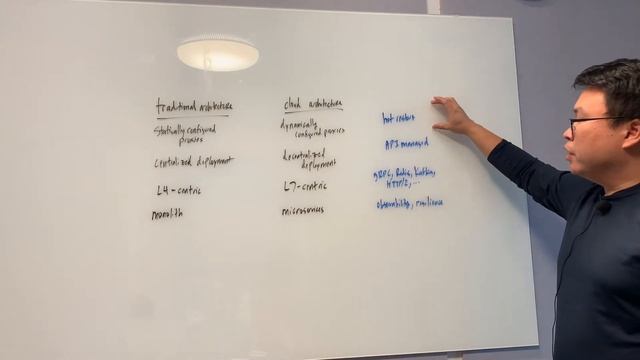 traditional architecture
statically configured
proxies
centralized deployment
L4-centric
monolith
cloud architecture
dynamically
configured proxies
decentralized
deployment
L7-centric
microservices
hot restart
API managed
gRPC, Redis, Kafka,
HTTP/2, ...
observability, resilience